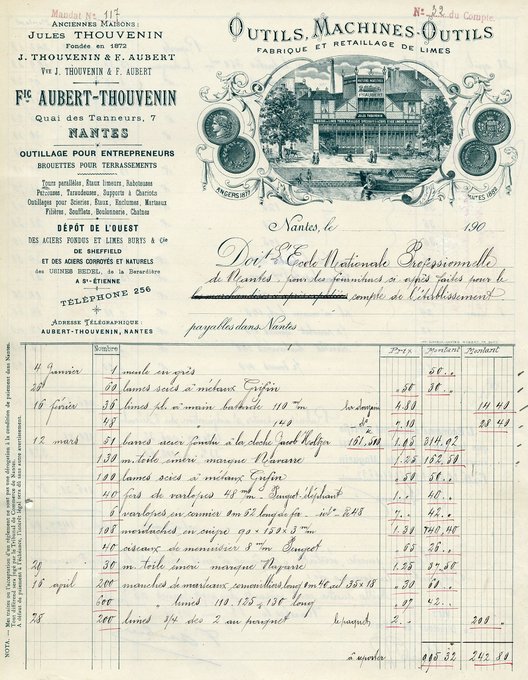 Mandat No 117
No 22 du Compte
ANCIENNES MAISONS:
JULES THOUVENIN
Fondée en 1872
J. THOUVENIN & F. AUBERT
Vve J. THOUVENIN & F. AUBERT
Fic AUBERT-THOUVENIN
Quai des Tanneurs, 7
NANTES
OUTILLAGE POUR ENTREPRENEURS
BROUETTES POUR TERRASSEMENTS
Tours parallèles, Étaux limeurs, Raboteuses
Perceuses, Taraudeuses, Supports à Chariots
Outillages pour Scieries, Étaux, Enclumes, Marteaux
Filières, Soufflets, Boulonnerie, Chaînes
DÉPÔT DE L'OUEST
DES ACIERS FONDUS ET LIMES BURYS & Cie
DE SHEFFIELD
ET DES ACIERS CORROYÉS ET NATURELS
des USINES BEDEL, de la Berardière
A St-ÉTIENNE
TÉLÉPHONE 256
ADRESSE TÉLÉGRAPHIQUE:
AUBERT-THOUVENIN, NANTES
OUTILS, MACHINES-OUTILS
FABRIQUE ET RETAILLAGE DE LIMES
JULES THOUVENIN
ANGERS 1877
NANTES 1882
Nantes, le 190
Doit L'Ecole Nationale Professionnelle
de Nantes, pour les fournitures ci après faites pour le
compte de l'établissement
payables dans Nantes
Nombre Prix Montant Montant
4 Janvier 1 meule en grès 50 "
26 60 lames scies à métaux Griffin .50 30 "
16 février 36 limes pl. à main batarde 110 m/m la douzaine 4.80 14 40
48 " 140 do 7.10 28 40
12 mars 51 barres acier fondu à la cloche Jacob Holtzer 161,510 1.95 314.92
130 m. toile émeri marque Navarre 1.25 162,50
100 lames scies à métaux Griffin .50 50 "
40 fers de varlopes 48 m/m Peugeot éléphant 1 " 40 "
6 varlopes en cormier 0m 52 long de fer 7 " 42 "
40 ciseaux de menuisier 8 m/m Peugeot .65 26 "
29 30 m. toile émeri marque Navarre 1.25 37,50
16 avril 200 manches de marteaux cornouillers long 0m 40 œil 35 x 18 .30 60 "
600 " limes 110. 125 & 130 long .07 42 "
28 200 limes 3/4 des 2 au poignet le paquet 2 " 200 "
à reporter 995 32 242 80
NOTA. — Mes traites ou l'acceptation d'un règlement ne sont pas une dérogation à la condition de paiement dans Nantes.
Tout différend sera jugé par le Tribunal de Commerce de Nantes.
A défaut de paiement à l'échéance, l'intérêt légal sera dû sans autre avertissement.